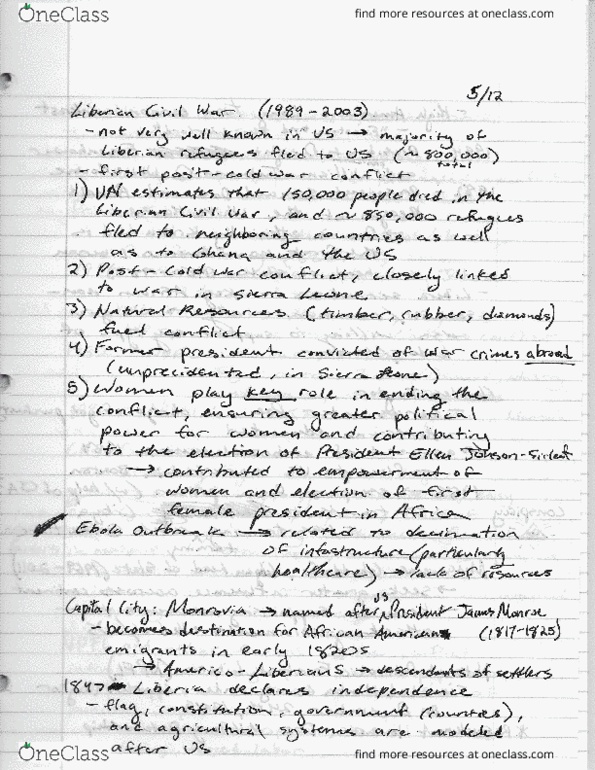 OneClass
find more resources at oneclass.com
5/12
Liberian Civil War (1989-2003)
- not very well known in US → majority of
Liberian refugees fled to US (~800,000)
total
- first post-cold war conflict
1) UN estimates that 150,000 people died in the
Liberian Civil War, and ~850,000 refugees
fled to neighboring countries as well
as to Ghana and the US
2) Post-Cold War conflict, closely linked
to war in Sierra Leone
3) Natural Resources (timber, rubber, diamonds)
fuel conflict
4) Former president convicted of war crimes abroad
(unprecidented, in Sierra Leone)
5) Women play key role in ending the
conflict, ensuring greater political
power for women and contributing
to the election of President Ellen Johnson-Sirleaf
→ contributed to empowerment of
women and election of first
female president in Africa
Ebola Outbreak → related to decimation
of infastructure (particularly
healthcare) → lack of resources
Capital City: Monrovia → named after US President James Monroe
- becomes destination for African American (1817-1825)
emigrants in early 1820s
→ Americo-Liberians → descendants of settlers
1847 - Liberia declares independence
- flag, constitution, government (counties),
and agricultural systems are modeled
after US
OneClass
find more resources at oneclass.com